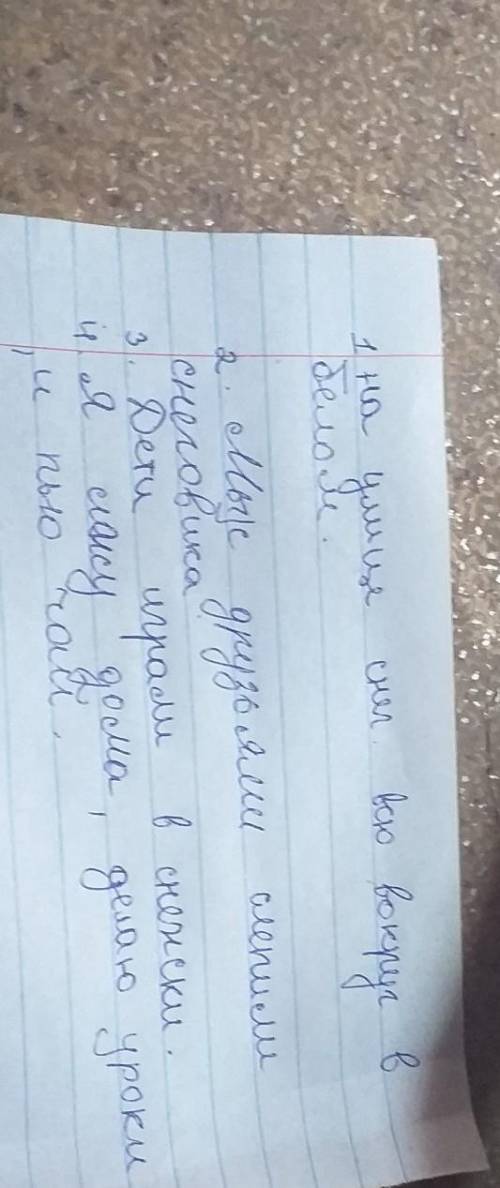 1 на улице снег. всю вокруг в
белом.
2. Мы с друзьями слепили
снеговика
3. Дети играли в снежки.
4. Я сижу дома, делаю уроки
, и пью чай.